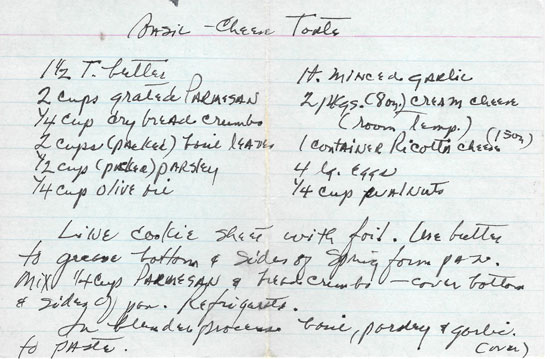 Basil - Cheese Torte
1½ T. butter
2 cups grated Parmesan
¼ cup dry bread crumbs
2 cups (packed) basil leaves
½ cup (packed) parsley
¼ cup olive oil
1 t. minced garlic
2 pkgs. (8 oz.) cream cheese
(room temp.)
1 container Ricotta cheese (15 oz)
4 lg. eggs
¼ cup walnuts
Line cookie sheet with foil. Use butter
to grease bottom & sides of spring form pan.
Mix ¼ cup Parmesan & bread crumbs - cover bottom
& sides of pan. Refrigerate.
In blender process basil, parsley & garlic
to paste. (over)